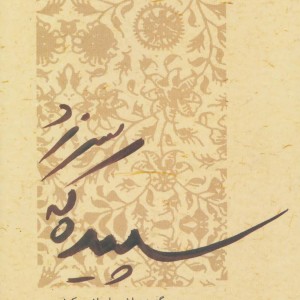 سپیده
سر زد